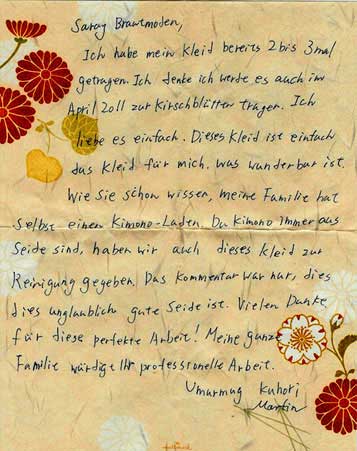 Saray Brautmoden,
Ich habe mein Kleid bereits 2 bis 3 mal
getragen. Ich denke ich werde es auch im
April 2011 zur Kirschblüten tragen. Ich
liebe es einfach. Dieses Kleid ist einfach
das Kleid für mich. was wunderbar ist.
Wie Sie schon wissen, meine Familie hat
Selbst einen Kimono-Laden. Da Kimono immer aus
Seide sind, haben wir auch dieses Kleid zur
Reinigung gegeben. Das Kommentar war nur, dies
dies unglaublich gute Seide ist. Vielen Danke
für diese perfekte Arbeit! Meine ganze
Familie würdigt Ihr professionelle Arbeit.
Umarmung Kuhori
Martin